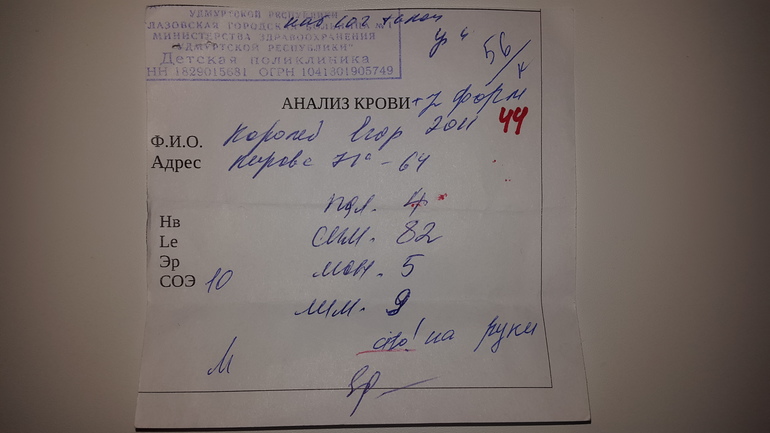 УДМУРТСКОЙ РЕСПУБЛИКИ
ГЛАЗОВСКАЯ ГОРОДСКАЯ №1
МИНИСТЕРСТВА ЗДРАВООХРАНЕНИЯ
УДМУРТСКОЙ РЕСПУБЛИКИ"
Детская поликлиника
ИНН 1829015681 ОГРН 1041801905749
56/
АНАЛИЗ КРОВИ + форм
44
Ф.И.О. Королев Егор 2011
Адрес Кирова 71а - 64
пал. 4
Нв
Le сегм. 82
Эр мон. 5
СОЭ 10
лим. 9
cito! на руки